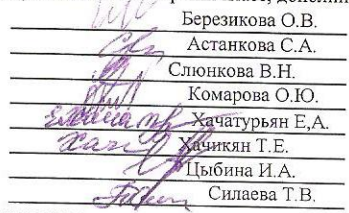 Березикова О.В.
Астанкова С.А.
Слюнкова В.Н.
Комарова О.Ю.
Хачатурьян Е,А.
Хачикян Т.Е.
Цыбина И.А.
Силаева Т.В.